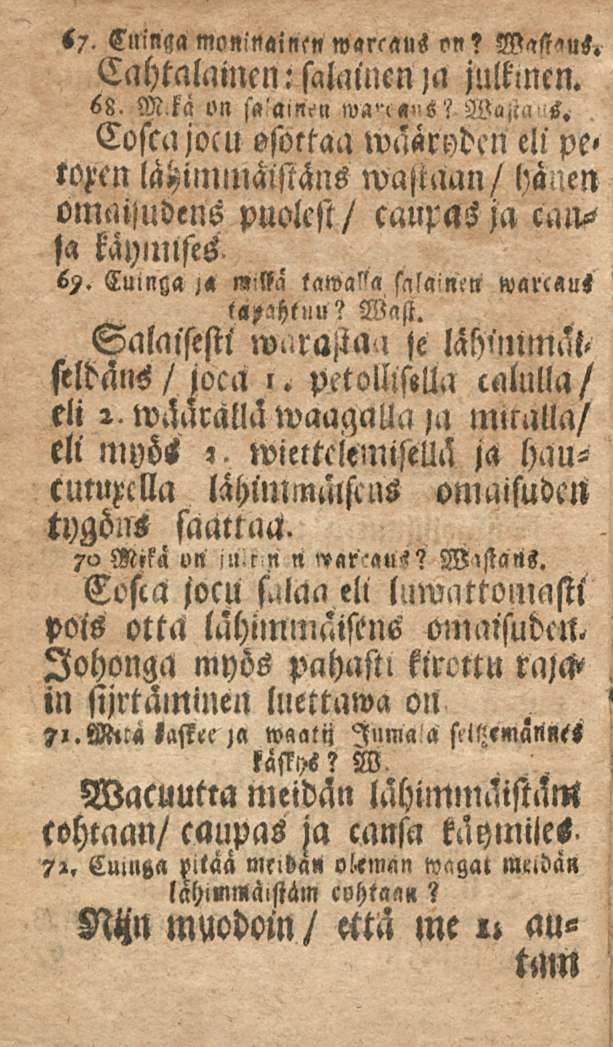 67. Cuinga moninainen warcaus on? Wastaus.
Cahtalainen: salainen ja julkinen.
68. Mikä on salainen warcaus? Wastaus.
Cosca jocu osottaa wääryden eli pe-
toxen lähimmäistäns wastaan/ hänen
omaisudens puolest/ caupas ja can-
sa käymises.
69. Cuinga ja millä tawalla salainen warcaus
tapahtuu? Wast.
Salaisesti warastaa se lähimmäi-
seldäns/ joca 1. petollisella calulla/
eli 2. wäärällä waagalla ja mitalla/
eli myös 3. wiettelemisellä ja hau-
cutuxella lähimmäisens omaisuden
tygöns saattaa.
70 Mikä on julkinen warcaus? Wastaus.
Cosca jocu salaa eli luwattomasti
pois otta lähimmäisens omaisuden.
Johonga myös pahasti kirottu raja-
in sijrtäminen luettawa on.
71. Mitä kaskee ja waatij Jumala seitzemännes
käskys? W.
Wacuutta meidän lähimmäistäm
cohtaan/ caupas ja cansa käymises.
72. Cuinga pitää meidän oleman wagat meidän
lähimmäistäm cohtaan?
Nijn muodoin/ että me 1. au-
tam